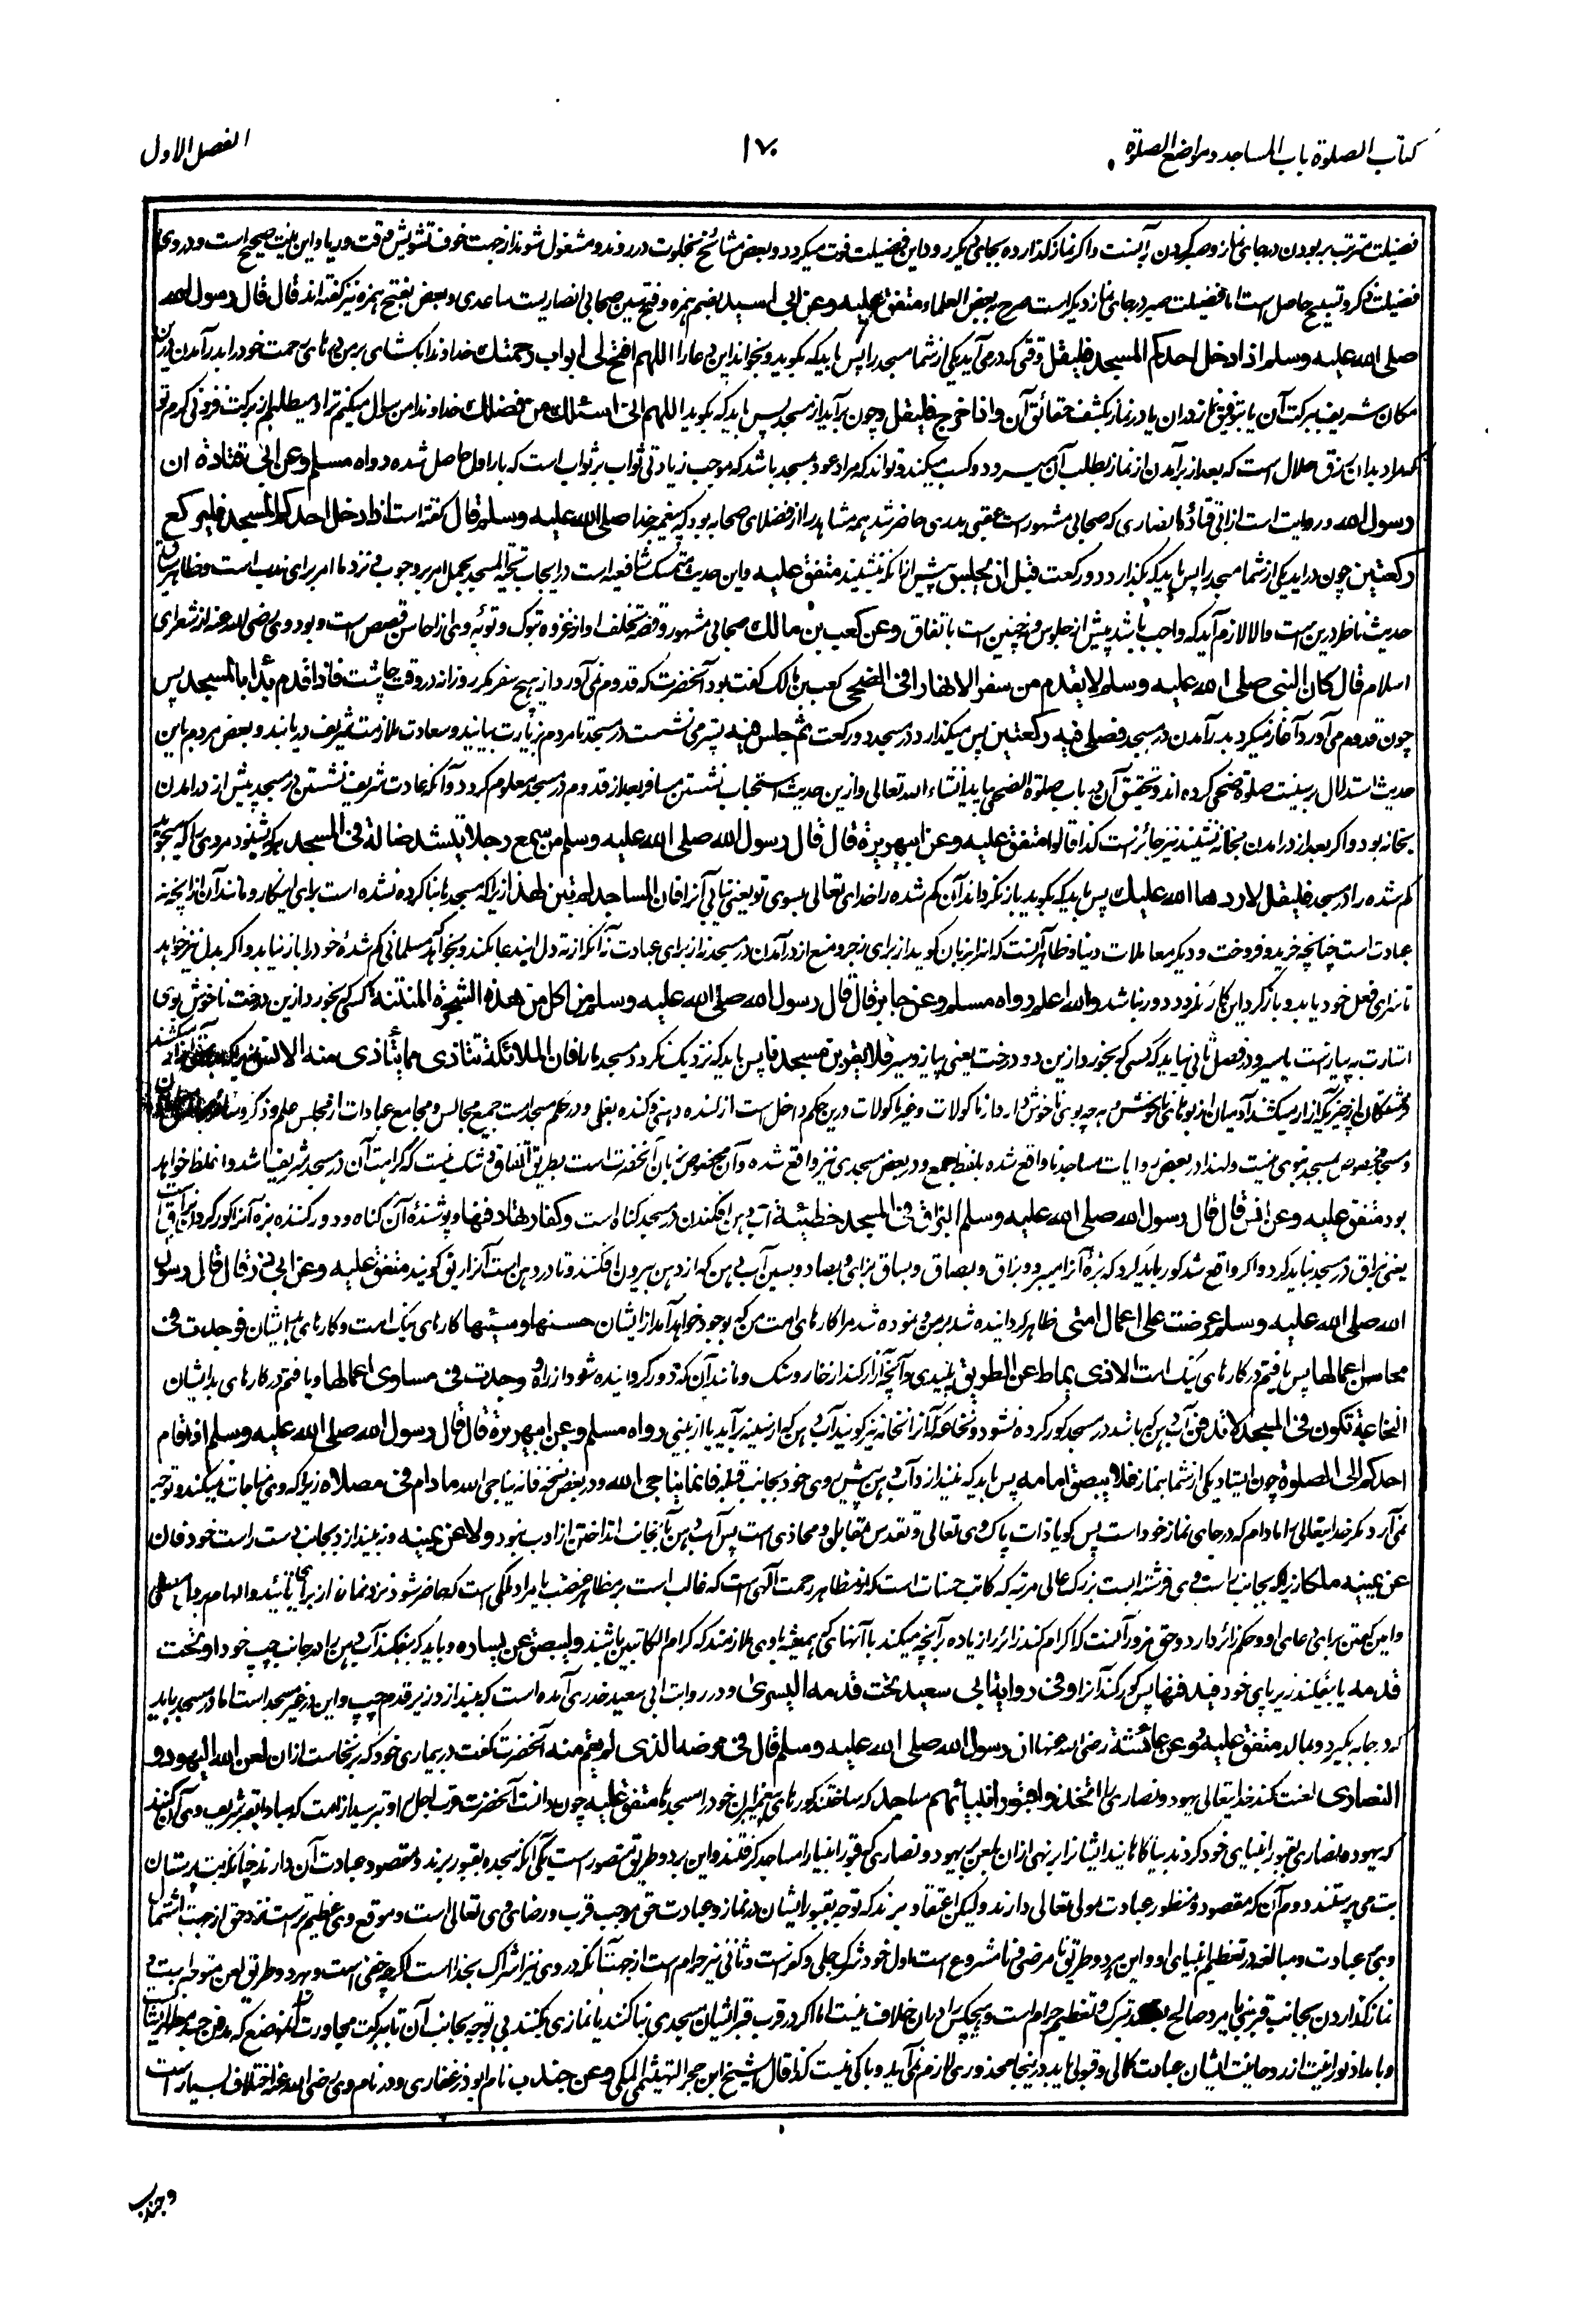 کتاب الصلوة باب المساجد ومواضع الصلوة
۱۷۰
الفصل الاول
فضیلت مترتب بر بودن در جای نماز و صبر کردن بر آنست و اگر نماز گذارده بجای دیگر رود این فضیلت فوت میگردد و بعض مشائخ بخلوت در روند و مشغول شوند از جهت خوف تشویش وقت و ریا و این نیت صحیح است و در وی
فضیلت ذکر و تسبیح حاصل است اما فضیلت صبر در جای نماز دیگر است صرح به بعض العلماء متفق علیه وعن ابی اسید بضم همزه و فتح سین صحابی انصاریست ساعدی و بعض بفتح همزه نیز گفته اند قال قال رسول الله
صلی الله علیه وسلم اذا دخل احدکم المسجد فلیقل وقتی که در می آید یکی از شما مسجد را پس باید که بگوید و بخواند این دعا را اللهم افتح لی ابواب رحمتك خداوندا بکشای بر من درهای رحمت خود را بدر آمدن درین
مکان شریف ببرکت آن یا بتوفیق نماز دران یا در نماز بکشف حقائق آن واذا خرج فلیقل و چون برآید از مسجد پس باید که بگوید اللهم انی اسئلك من فضلك خداوندا من سوال میکنم ترا و میطلبم از برکت فزونی کرم تو
که مراد بدان رزق حلال است که بعد از برآمدن از نماز بطلب آن میرود و کسب میکند و تواند که مراد عود مسجد باشد که موجب زیادتی ثواب بر ثواب است که بار اول حاصل شده رواه مسلم وعن ابی قتادة ان
رسول الله و روایت است از ابی قتاده انصاری که صحابی مشهور است عقبی بدری حاضر شد همه مشاهد را از فضلای صحابه بود که پیغمبر خدا صلی الله علیه وسلم قال گفته است اذا دخل احدکم المسجد فلیرکع
رکعتین چون در اید یکی از شما مسجد را پس باید که بگذارد دو رکعت قبل ان یجلس پیش از انکه بنشیند متفق علیه و این حدیث متمسک شافعیه است در ایجاب تحیة المسجد بحمل امر بر وجوب و نزد ما امر برای ندب است و ظاهر
حدیث ناظر درین است والا لازم آید که واجب باشد پیش از جلوس و نه چنین است باتفاق وعن کعب بن مالك صحابی مشهور و قصه تخلف او از غزوه تبوک و توبه وی از احاسن قصص است و بود وی رضی الله عنه از شعرای
اسلام قال کان النبی صلی الله علیه وسلم لا یقدم من سفر الا نهارا فی الضحی کعب بن مالک گفت بود آنحضرت که قدوم نمی آورد از هیچ سفر مگر روزانه در وقت چاشت فاذا قدم بدأ بالمسجد پس
چون قدوم می آورد آغاز میکرد بدر آمدن در مسجد فصلی فیه رکعتین پس میگذارد در مسجد دو رکعت ثم جلس فیه پستر می نشست در مسجد تا مردم زیارت بیایند و سعادت ملازمت شریف دریابند و بعض مردم باین
حدیث استدلال بر سنیت صلوة ضحی کرده اند و تحقیق آن در باب صلوة الضحی بیاید انشاء الله تعالی و ازین حدیث استحباب نشستن مسافر بعد از قدوم در مسجد معلوم گردد و آنکه عادت شریف نشستن در مسجد پیش از درامدن
بخانه بود و اگر بعد از درامدن بخانه بنشیند نیز جائز است کذا قالوا متفق علیه وعن ابیهریرة قال قال رسول الله صلی الله علیه وسلم من سمع رجلا ینشد ضالة فی المسجد هر که بشنود مردی را که میجوید
گم شده را در مسجد فلیقل لا ردها الله علیك پس باید که بگوید باز نگرداند آن گم شده را خدای تعالی بسوی تو یعنی نیابی آنرا فان المساجد لم تبن لهذا زیرا که مسجدها بنا کرده نشده است برای اینکار و مانند آن از انچه نه
عبادت است چنانچه خرید و فروخت و دیگر معاملات دنیا و ظاهر آنست که انرا بزبان گوید از برای زجر و منع از درآمدن در مسجد نه از برای عبادت نه آنکه از ته دل این دعا بکند و بخواهد که مسلمانی گم شدهٔ خود را باز نیابد و اگر بدل نیز خواهد
تا سزای فعل خود یابد و باز گرد این کار نگردد دور نباشد والله اعلم رواه مسلم وعن جابر قال قال رسول الله صلی الله علیه وسلم من اکل من هذه الشجرة المنتنة کسی که بخورد ازین درخت ناخوش بوی
اشارت به پیاز است یا سیر و در فصل ثانی بیاید که کسی که بخورد ازین دو درخت یعنی پیاز و سیر فلا یقربن مسجدنا پس باید که نزدیک نگردد مسجد ما را فان الملائکة تتاذی مما یتاذی منه الانس
فرشتگان از چیزیکه آزار میکشند آدمیان از بوهای ناخوش و هر چه بوی ناخوش دارد از ماکولات و غیر ماکولات درین حکم داخل است از گنده دهنی و گنده بغلی و در حکم مسجد است جمیع مجالس و مجامع عبادات از مجلس علم و ذکر و
و مسجد مخصوص بمسجد نبوی نیست و لهذا در بعض روایات مساجدنا واقع شده بلفظ جمع و در بعض مسجدی نیز واقع شده و آن مخصوص بزبان آنحضرت است بطریق اتفاق و شک نیست که کراهت آن در مسجد شریف اشد و اغلظ خواهد
بود متفق علیه وعن انس قال قال رسول الله صلی الله علیه وسلم البزاق فی المسجد خطیئة آب دهن افکندن در مسجد گناه است وکفارتها دفنها و پوشندهٔ آن گناه و دور کننده بزه آنرا گور کردن بزاق است
یعنی بزاق در مسجد نباید کرد و اگر واقع شد گور باید کرد که بزهٔ آنرا میبرد و بزاق و بصاق و بساق بزای و بصاد و بسین آب دهن که از دهن بیرون افکنند و تا در دهن است آنرا ریق گویند متفق علیه وعن ابی ذر قال قال رسول
الله صلی الله علیه وسلم عرضت علی اعمال امتی ظاهر گردانیده شد بر من و نموده شد مرا کارهای امت من که بوجود خواهد آمد از ایشان حسنها وسیئها کارهای نیک است و کارهای بد ایشان فوجدت فی
محاسن اعمالها پس یافتم در کارهای نیک امت الاذی یماط عن الطریق پلیدی و آنچه آزار کند از خار و سنگ و مانند آن که دور گردانیده شود از راه ووجدت فی مساوی اعمالها و یافتم در کارهای بد ایشان
النخاعة تکون فی المسجد لا تدفن آب دهن که باشد در مسجد گور کرده نشود و نخاعه که آنرا نخامه نیز گویند آب دهن که از سینه برآید یا از بینی رواه مسلم وعن ابیهریرة قال قال رسول الله صلی الله علیه وسلم اذا قام
احدکم الی الصلوة چون ایستاد یکی از شما بنماز فلا یبصق امامه پس باید که نیندازد آب دهن پیش روی خود بجانب قبله فانما یناجی الله و در بعض نسخ فانه یناجی الله مادام فی مصلاه زیرا که وی مناجات میکند و توجه
نمی آرد مگر خدایتعالی را مادام که در جای نماز خود است پس گویا ذات پاک وی تعالی و تقدس مقابل و محاذی است پس آب دهن بآنجانب انداختن از ادب نبود ولا عن یمینه و نه بیندازد بجانب دست راست خود فان
عن یمینه ملکا زیرا که بجانب راست وی فرشته ایست بزرگ عالی مرتبه که کاتب حسنات است که از مظاهر رحمت آلهی است که غالب است بر مظاهر غضب یا مراد ملکی است که حاضر شود نزد نماز از برای تائید و الهام
و امین گفتن برای دعای او و حکم زائر دارد و حق مزور آنست که اکرام کند زائر را زیاده بر آنچه میکند با آنهائیکه همیشه با وی ملازمند که کرام الکاتبین باشند ولیبصق عن یساره و باید که بفکند آب دهن را در جانب چپ خود او تحت
قدمه یا بفکند زیر پای خود فیدفنها پس گور کند آنرا وفی روایة ابی سعید تحت قدمه الیسری و در روایت ابی سعید خدری آمده است که بیندازد زیر قدم چپ و این در غیر مسجد است اما در مسجد باید
که در جامه بگیرد و بمالد متفق علیه وعن عائشة رضی الله عنها ان رسول الله صلی الله علیه وسلم قال فی مرضه الذی لم یقم منه آنحضرت گفت در بیماری خود که برنخاست ازان لعن الله الیهود و
النصاری لعنت کند خدایتعالی یهود و نصاری را اتخذوا قبور انبیائهم مساجد که ساختند گورهای پیغمبران خود را مسجدها متفق علیه چون دانست آنحضرت قرب اجل را و ترسید از امت که مبادا بقبر شریف وی آن کنند
که یهود و نصاری بقبور انبیای خود کردند بیاگاهانید ایشانرا بر نهی ازان بلعن بر یهود و نصاری که قبور انبیا را مساجد گرفتند و این بر دو طریق متصور است یکی آنکه سجده بقبور برند و مقصود عبادت آن دارند چنانکه بت پرستان
بت می پرستند دوم آن که مقصود و منظور عبادت مولی تعالی دارند و لیکن اعتقاد برند که توجه بقبور ایشان در نماز و عبادت حق موجب قرب و رضای وی تعالی است و موقع وی عظیم تر است نزد حق از جهت اشتمال
وی بر عبادت و مبالغه در تعظیم انبیای او و این هر دو طریق نامرضی و نامشروع است اول خود شرک جلی و کفر است و ثانی نیز حرام است از جهت آنکه در وی نیز اشراک بخدا است اگر چه خفی است و بهر دو طریق لعن متوجه است و
نماز گذاردن بجانب قبر نبی یا مرد صالح بقصد تبرک و تعظیم حرام است و هیچکس را دران خلاف نیست اما اگر در قرب قبر ایشان مسجدی بنا کنند یا نمازی بکنند بی توجه بجانب آن تا ببرکت مجاورت آن موضع که مدفن جسد مطهر ایشان
و بامداد نورانیت از روحانیت ایشان عبادت کمالی و قبولی یابد درینجا محذوری لازم نمی آید و باکی نیست کذا قال الشیخ ابن حجر الهیتمی المکی وعن جندب نام ابوذر غفاری و در نام وی رضی الله عنه اختلاف بسیار است
وجندب